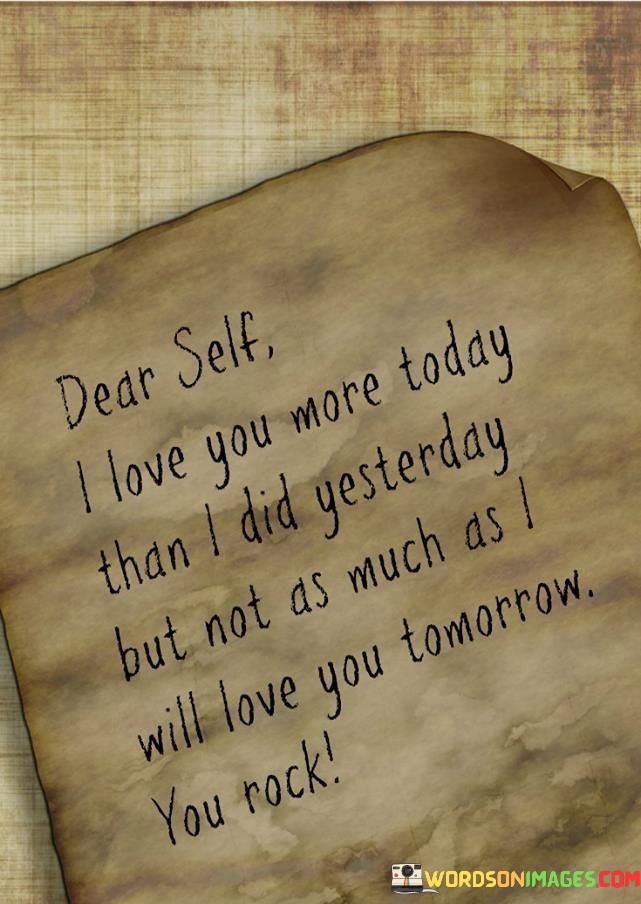 Dear Self,
I love you more today
than I did yesterday
but not as much as I
will love you tomorrow.
You rock!
WORDSONIMAGES.COM